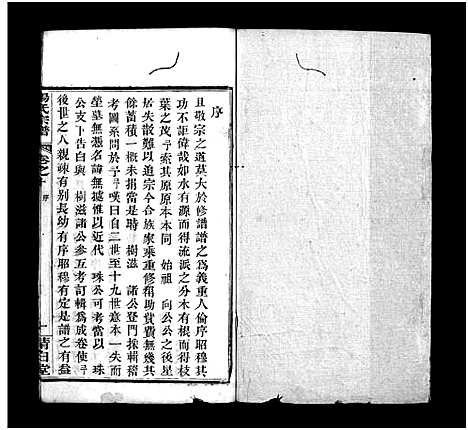 序
且敬宗之道莫大於修譜譜之為義重人倫序昭穆其
功不誣偉哉如水有源而得流派之分木有根而得枝
葉之茂尋索其原原本本同 始祖 向公公之後星
居失散難以追宗今合族家乘重修釀助貲費無幾其
餘蓄積一概未捐當是時 樹滋 諸公登門採輯稽
考圖系問於予予嘆曰自二世至十九世意本一失而
塋墓無憑名諱無據惟以近代 珠公可考當以 珠
公支下告白與 樹滋諸公參五考訂輯為成卷使
後世之人親疎有別長幼有序昭穆有定是譜之有益
楊氏宗譜
卷之
序
清白堂